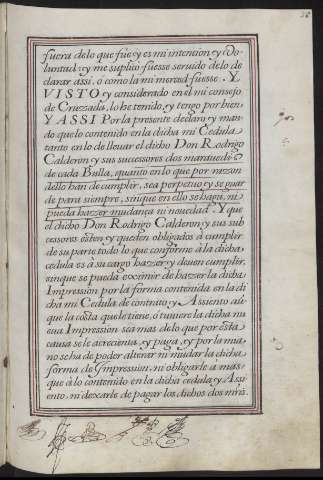 fuera delo que fue y es mi intencion y Vo-
luntad: y me suplico fuesse seruido delo de
clarar assi. ò como la mi merced fuesse. Y
VISTO y considerado en el mi consejo
de Cruzzada, lo he tenido, y tengo por bien
Y ASSI Por la presente declaro y man-
do que lo contenido en la dicha mi Cedula
tanto en lo de lleuar el dicho Don Rodrigo
Calderon y sus successores dos marauedis
de cada Bulla, quanto en lo que por razon
dello han de cumplir, sea perpetuo y se guar
de para siempre, sinque en ello se haga, ni
pueda hazzer mudança ni nouedad. Y que
el dicho Don Rodrigo Calderon, y sus sub
cessores esten y queden obligados à cumplir
de su parte todo lo que conforme à la dicha
cedula es à su cargo hazzer y deuen cumplir,
sinque se pueda exximir de hazzer la dicha
Impression por la forma contenida en la di
cha mi Cedula de contrato y Assiento aũ
que la costa que le tiene, ò tuuiere la dicha nu
eua Impression sea mas delo que por esta
causa se le acrecienta, y paga, y por la mia
no se hu de poder alterar ni mudar la dicha
forma de Impression, ni obligarle a mas
que à lo contenido en la dicha cedula y Assi
ento, ni dexarle de pagar los dichos dos mrs.